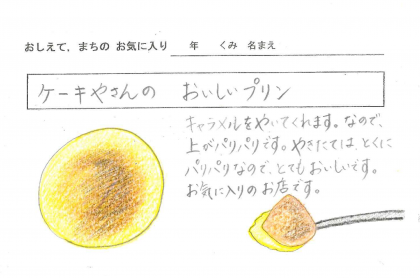 おしえて、まちの お気に入り　年　くみ　名まえ
ケーキやさんの　おいしいプリン
キャラメルをやいてくれます。なので、
上がパリパリです。やきたては、とくに
パリパリなので、とてもおいしいです。
お気に入りのお店です。